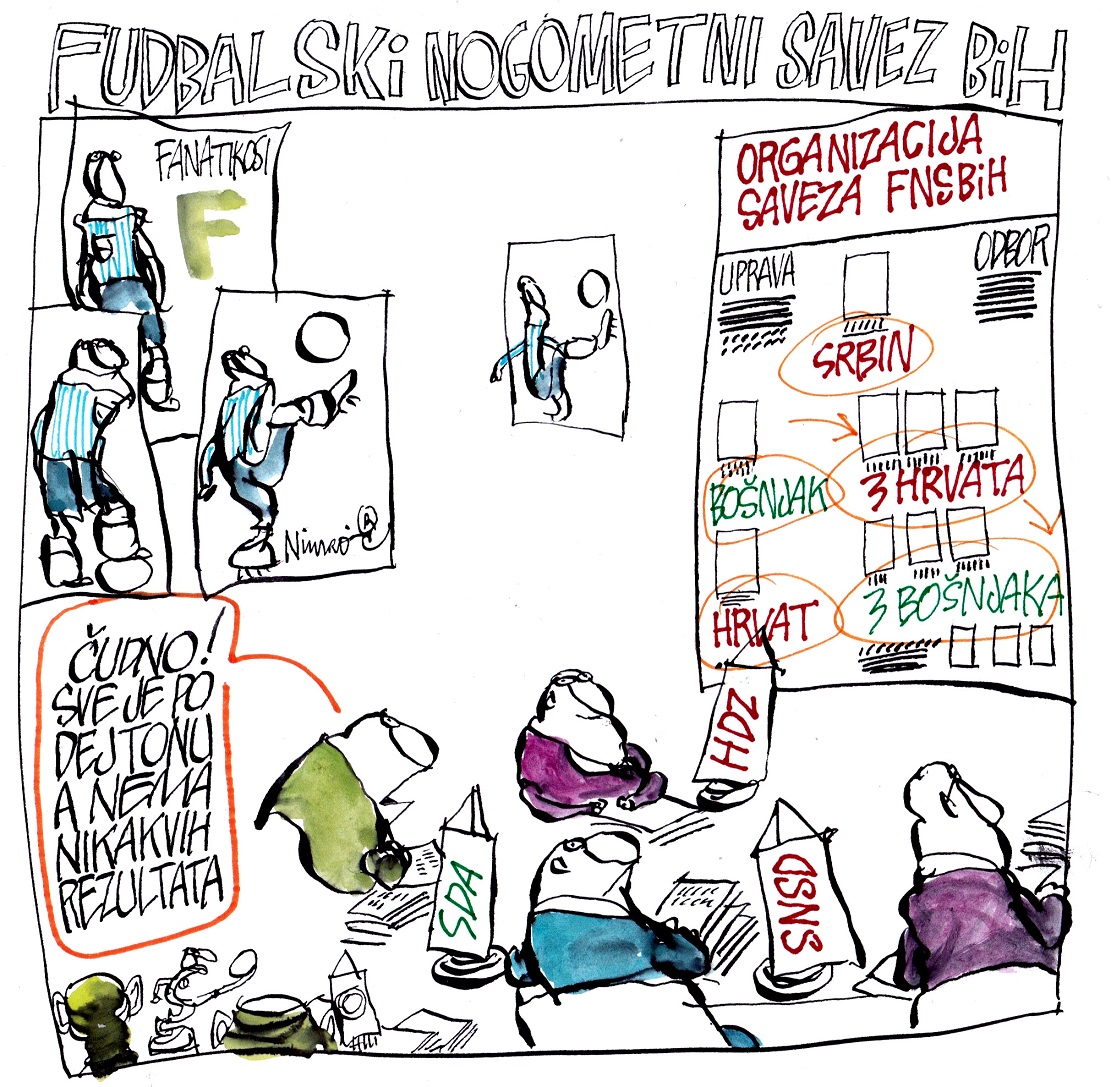 FUDBALSKI NOGOMETNI SAVEZ BiH
FANATIKOSI
F
ORGANIZACIJA
SAVEZA FNSBiH
UPRAVA
ODBOR
SRBIN
BOŠNJAK
3 HRVATA
HRVAT
3 BOŠNJAKA
ČUDNO!
SVE JE PO
DEJTONU
A NEMA
NIKAKVIH
REZULTATA
HDZ
SDA
SNSD